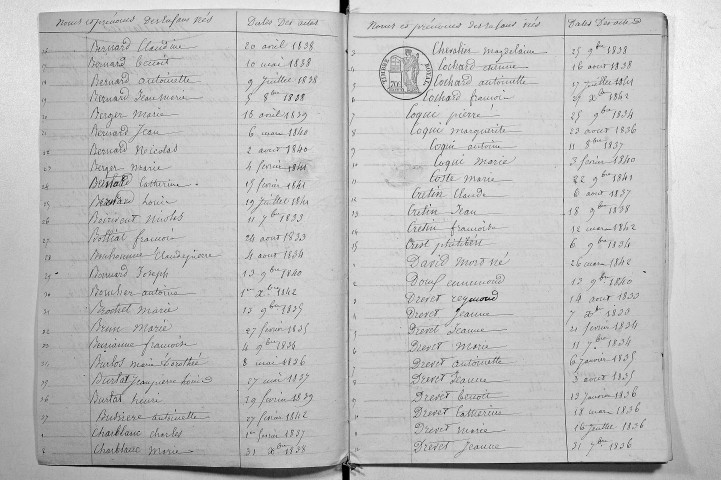 Noms et prénoms des enfans nés Dates Des actes
16 Bernard Claudine 20 avril 1838
17 Bernard Benoit 10 mai 1838
18 Bernard antoinette 9 Juillet 1838
19 Bernard Jean marie 5 8bre 1838
20 Berger Marie 16 avril 1839
21 Bernard Jean 6 mars 1840
22 Bernard Nicolas 2 aout 1840
23 Berger Marie 4 fevrier 1841
24 Bernard Catherine 15 fevrier 1841
25 Bernard Louise 19 Juillet 1841
26 11 7bre 1833
27 francois 24 aout 1833
28 4 aout 1834
29 Bernard Joseph 13 9bre 1840
30 Boucher antoine 1er Xbre 1842
31 Brochet Marie 13 9bre 1835
32 Brun Marie 27 fevrier 1835
33 francoise 4 9bre 1834
34 Burlos marie Dorothée 8 mai 1836
35 Burtat Jean pierre Louis 27 mai 1837
36 Burtat henri 19 fevrier 1839
37 Bussiere antoinette 27 fevrier 1842
1 Charblanc charles 1er fevrier 1837
2 Charblanc Marie 31 Xbre 1838
Noms et prénoms des enfans nés Dates Des actes
3 Chevalier Magdelaine 25 9bre 1838
4 Cochard etienne 16 aout 1838
5 Cochard antoinette 17 Juillet 1841
6 Cochard francois 29 Xbre 1842
7 Coque pierre 25 9bre 1834
8 Coqui marguerite 23 aout 1836
9 Coqui antoine 11 8bre 1837
10 Coqui Marie 3 fevrier 1840
11 Coste marie 22 9bre 1841
12 Cretin Claude 6 aout 1837
13 Cretin Jean 18 9bre 1838
14 Cretin francoise 12 mars 1842
15 Crest philibert 6 9bre 1834
1 David Mort né 26 mars 1842
2 13 9bre 1840
3 Drevet reymond 14 aout 1833
4 Drevet Jeanne 7 Xbre 1833
5 Drevet Jeanne 21 fevrier 1834
6 Drevet Marie 11 7bre 1834
7 Drevet antoinette 6 Janvier 1835
8 Drevet Jeanne 3 aout 1835
9 Drevet Benoit 13 Janvier 1836
10 Drevet Catherine 18 mars 1836
11 Drevet marie 16 Juillet 1836
12 Drevet Jeanne 21 7bre 1836
TIMBRE ROYAL